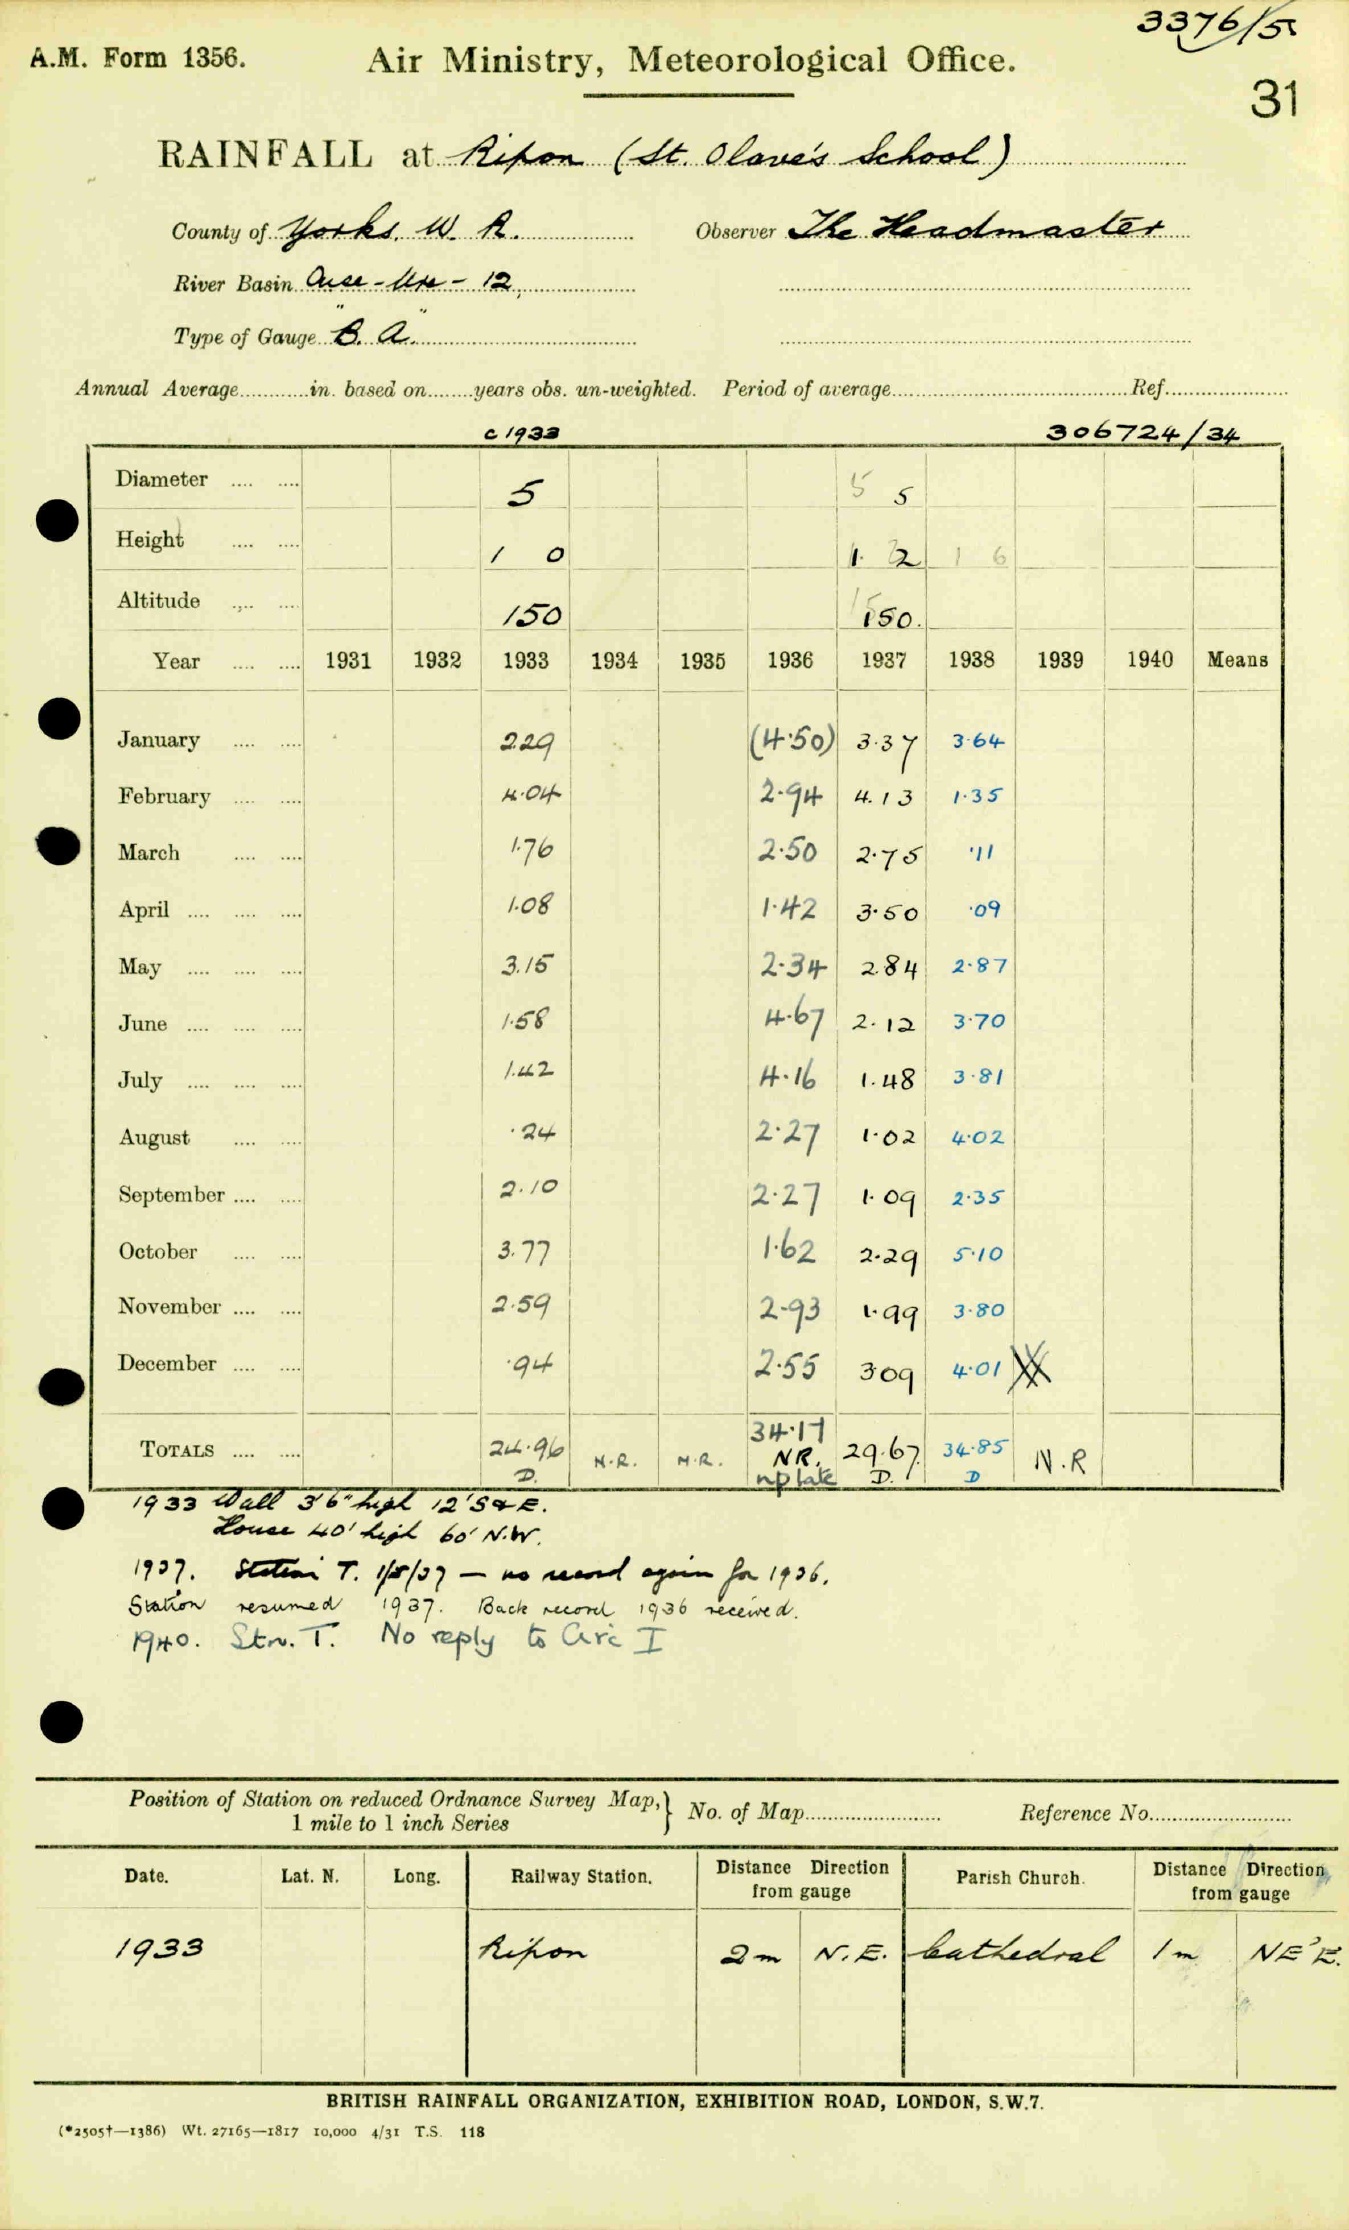 3376/5
A.M. Form 1356. Air Ministry, Meteorological Office.
31
RAINFALL at Ripon (St. Olave's School)
County of Yorks. W. R. Observer The Headmaster
River Basin Ouse - Ure - 12
Type of Gauge "B. A."
Annual Average............in. based on........years obs. un-weighted. Period of average.......... Ref..........
c 1933 306724/34
Diameter .... .... 5 5 5
Height .... .... 1 0 1. 2 1 6
Altitude .... .... 150 150.
Year .... .... 1931 1932 1933 1934 1935 1936 1937 1938 1939 1940 Means
January .... .... 2.29 (4.50) 3.37 3.64
February .... .... 4.04 2.94 4.13 1.35
March .... .... 1.76 2.50 2.75 .11
April .... .... .... 1.08 1.42 3.50 .09
May .... .... .... 3.15 2.34 2.84 2.87
June .... .... .... 1.58 4.67 2.12 3.70
July .... .... .... 1.42 4.16 1.48 3.81
August .... .... .24 2.27 1.02 4.02
September .... .... 2.10 2.27 1.09 2.35
October .... .... 3.77 1.62 2.29 5.10
November .... .... 2.59 2.93 1.99 3.80
December .... .... .94 2.55 3.09 4.01
TOTALS .... .... 24.96 D. N.R. N.R. 34.17 N.R. up late 29.67 D. 34.85 D N.R
1933 Wall 3'6" high 12' S & E.
House 40' high 60' N.W.
1937. Station T. 1/5/37 — no record again for 1936.
Station resumed 1937. Back record 1936 received.
1940. Stn. T. No reply to Circ I
Position of Station on reduced Ordnance Survey Map, 1 mile to 1 inch Series } No. of Map.......... Reference No..........
Date. Lat. N. Long. Railway Station. Distance Direction from gauge Parish Church. Distance Direction from gauge
1933 Ripon 2 m N.E. Cathedral 1 m NE'E.
BRITISH RAINFALL ORGANIZATION, EXHIBITION ROAD, LONDON, S.W.7.
(*2505†—1386) Wt. 27165—1817 10,000 4/31 T.S. 118